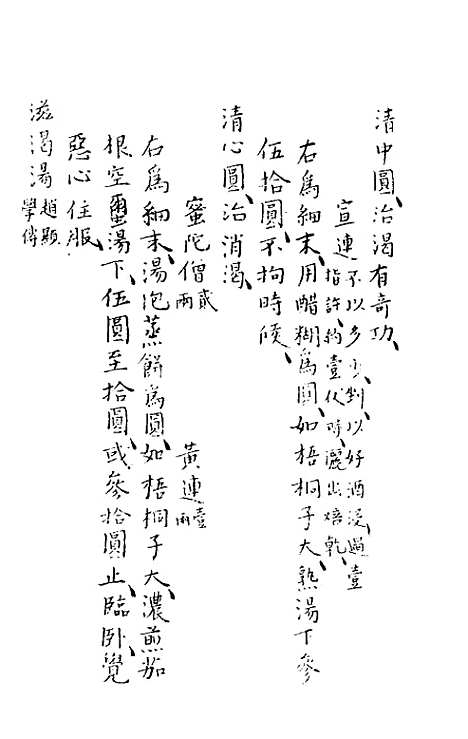 清中圓治渴有奇功
宣連不以多少剉以好酒浸過壹
指許約壹伏時灑出焙乾
右爲細末用醋糊爲圓如梧桐子大熟湯下參
伍拾圓不拘時候
清心圓治消渴
蜜陀僧貳兩 黃連壹兩
右爲細末湯泡蒸餅爲圓如梧桐子大濃煎茄
根空湯下伍圓至拾圓或參拾圓止臨卧覺
惡心住服
滋渴湯趙顯學傳